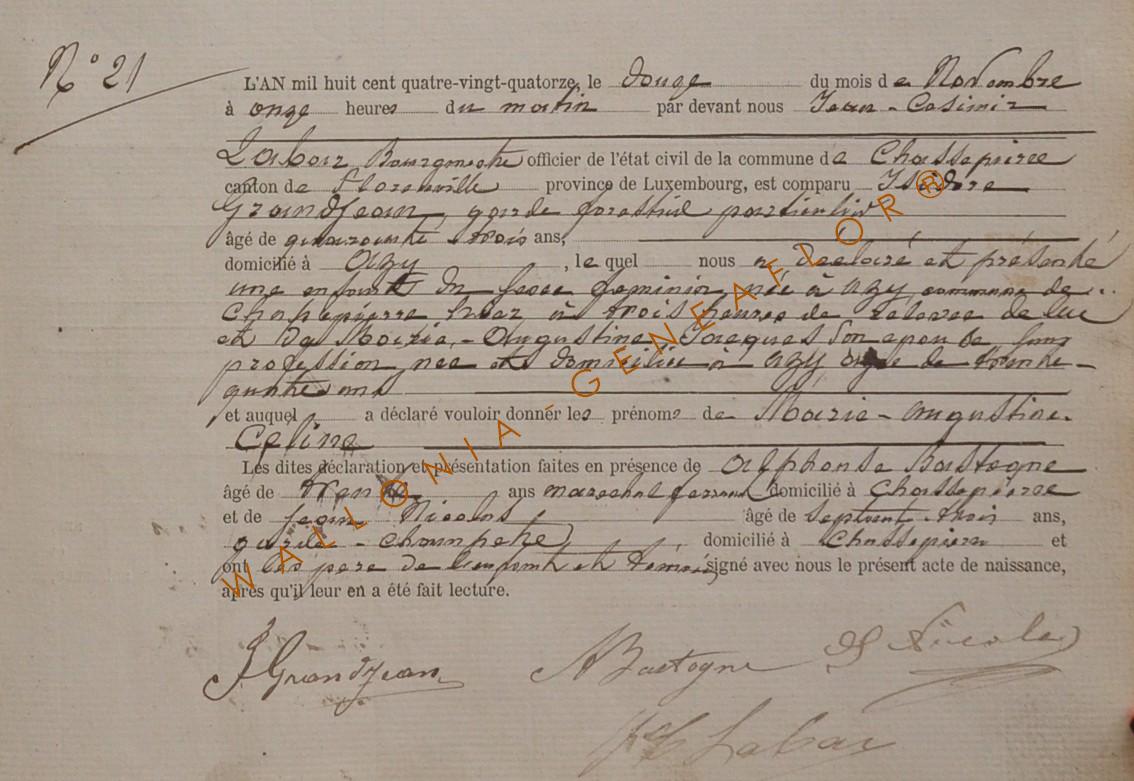 N° 21
L'AN mil huit cent quatre-vingt-quatorze, le douze du mois de Novembre
à onze heures du matin par devant nous Jean-Casimir
Labar Bourgmestre officier de l'état civil de la commune de Chassepierre
canton de Florenville province de Luxembourg, est comparu Isidore
Grandjean, garde forestier particulier
âgé de quarante-trois ans,
domicilié à Azy, lequel nous a declaré et présenté
une enfant du sexe feminin née à Azy, commune de
Chassepierre hier à trois heures de relevee de lui
et de Marie-Augustine Jacques son epouse sans
profession née et domiciliée à Azy agée de trente-
quatre ans
et auquel a déclaré vouloir donner les prénoms de Marie-Augustine.
Celine
Les dites déclaration et présentation faites en présence de Alphonse Bastogne
âgé de trente ans marechal ferrant domicilié à Chassepierre
et de Jean Nicolas âgé de septante-trois ans,
garde-champetre domicilié à Chassepierre et
ont les pere de l'enfant et témoins signé avec nous le présent acte de naissance,
après qu'il leur en a été fait lecture.
J Grandjean A Bastogne Nicolas
JC Labar
WALLONIA-GENEAFLOR®